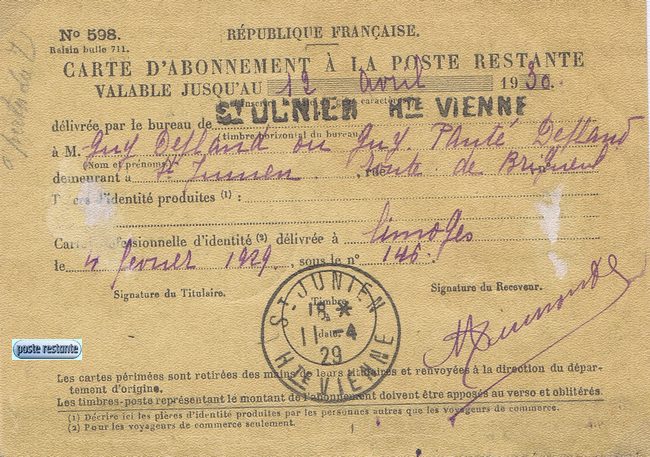 No 598.
Raisin bulle 711.
RÉPUBLIQUE FRANÇAISE.
CARTE D'ABONNEMENT À LA POSTE RESTANTE
VALABLE JUSQU'AU 12 avril 1930.
délivrée par le bureau de ST JUNIEN HTE VIENNE
(timbre horizontal du bureau)
à M. Guy Defland ou Guy Panté Defland
(Nom et prénoms)
demeurant à St Junien, rue Route de Brigueuil
T ces d'identité produites (1) :
Carte ofessionnelle d'identité (2) délivrée à Limoges
le 4 février 1929, sous le n° 146.
Signature du Titulaire.
Timbre
Signature du Receveur.
ST JUNIEN
18 *
11 - 4
date.
29
HTE VIENNE
poste restante
Les cartes périmées sont retirées des mains de leurs titulaires et renvoyées à la direction du dépar-
tement d'origine.
Les timbres-poste représentant le montant de l'abonnement doivent être apposés au verso et oblitérés.
(1) Décrire ici les pièces d'identité produites par les personnes autres que les voyageurs de commerce.
(2) Pour les voyageurs de commerce seulement.